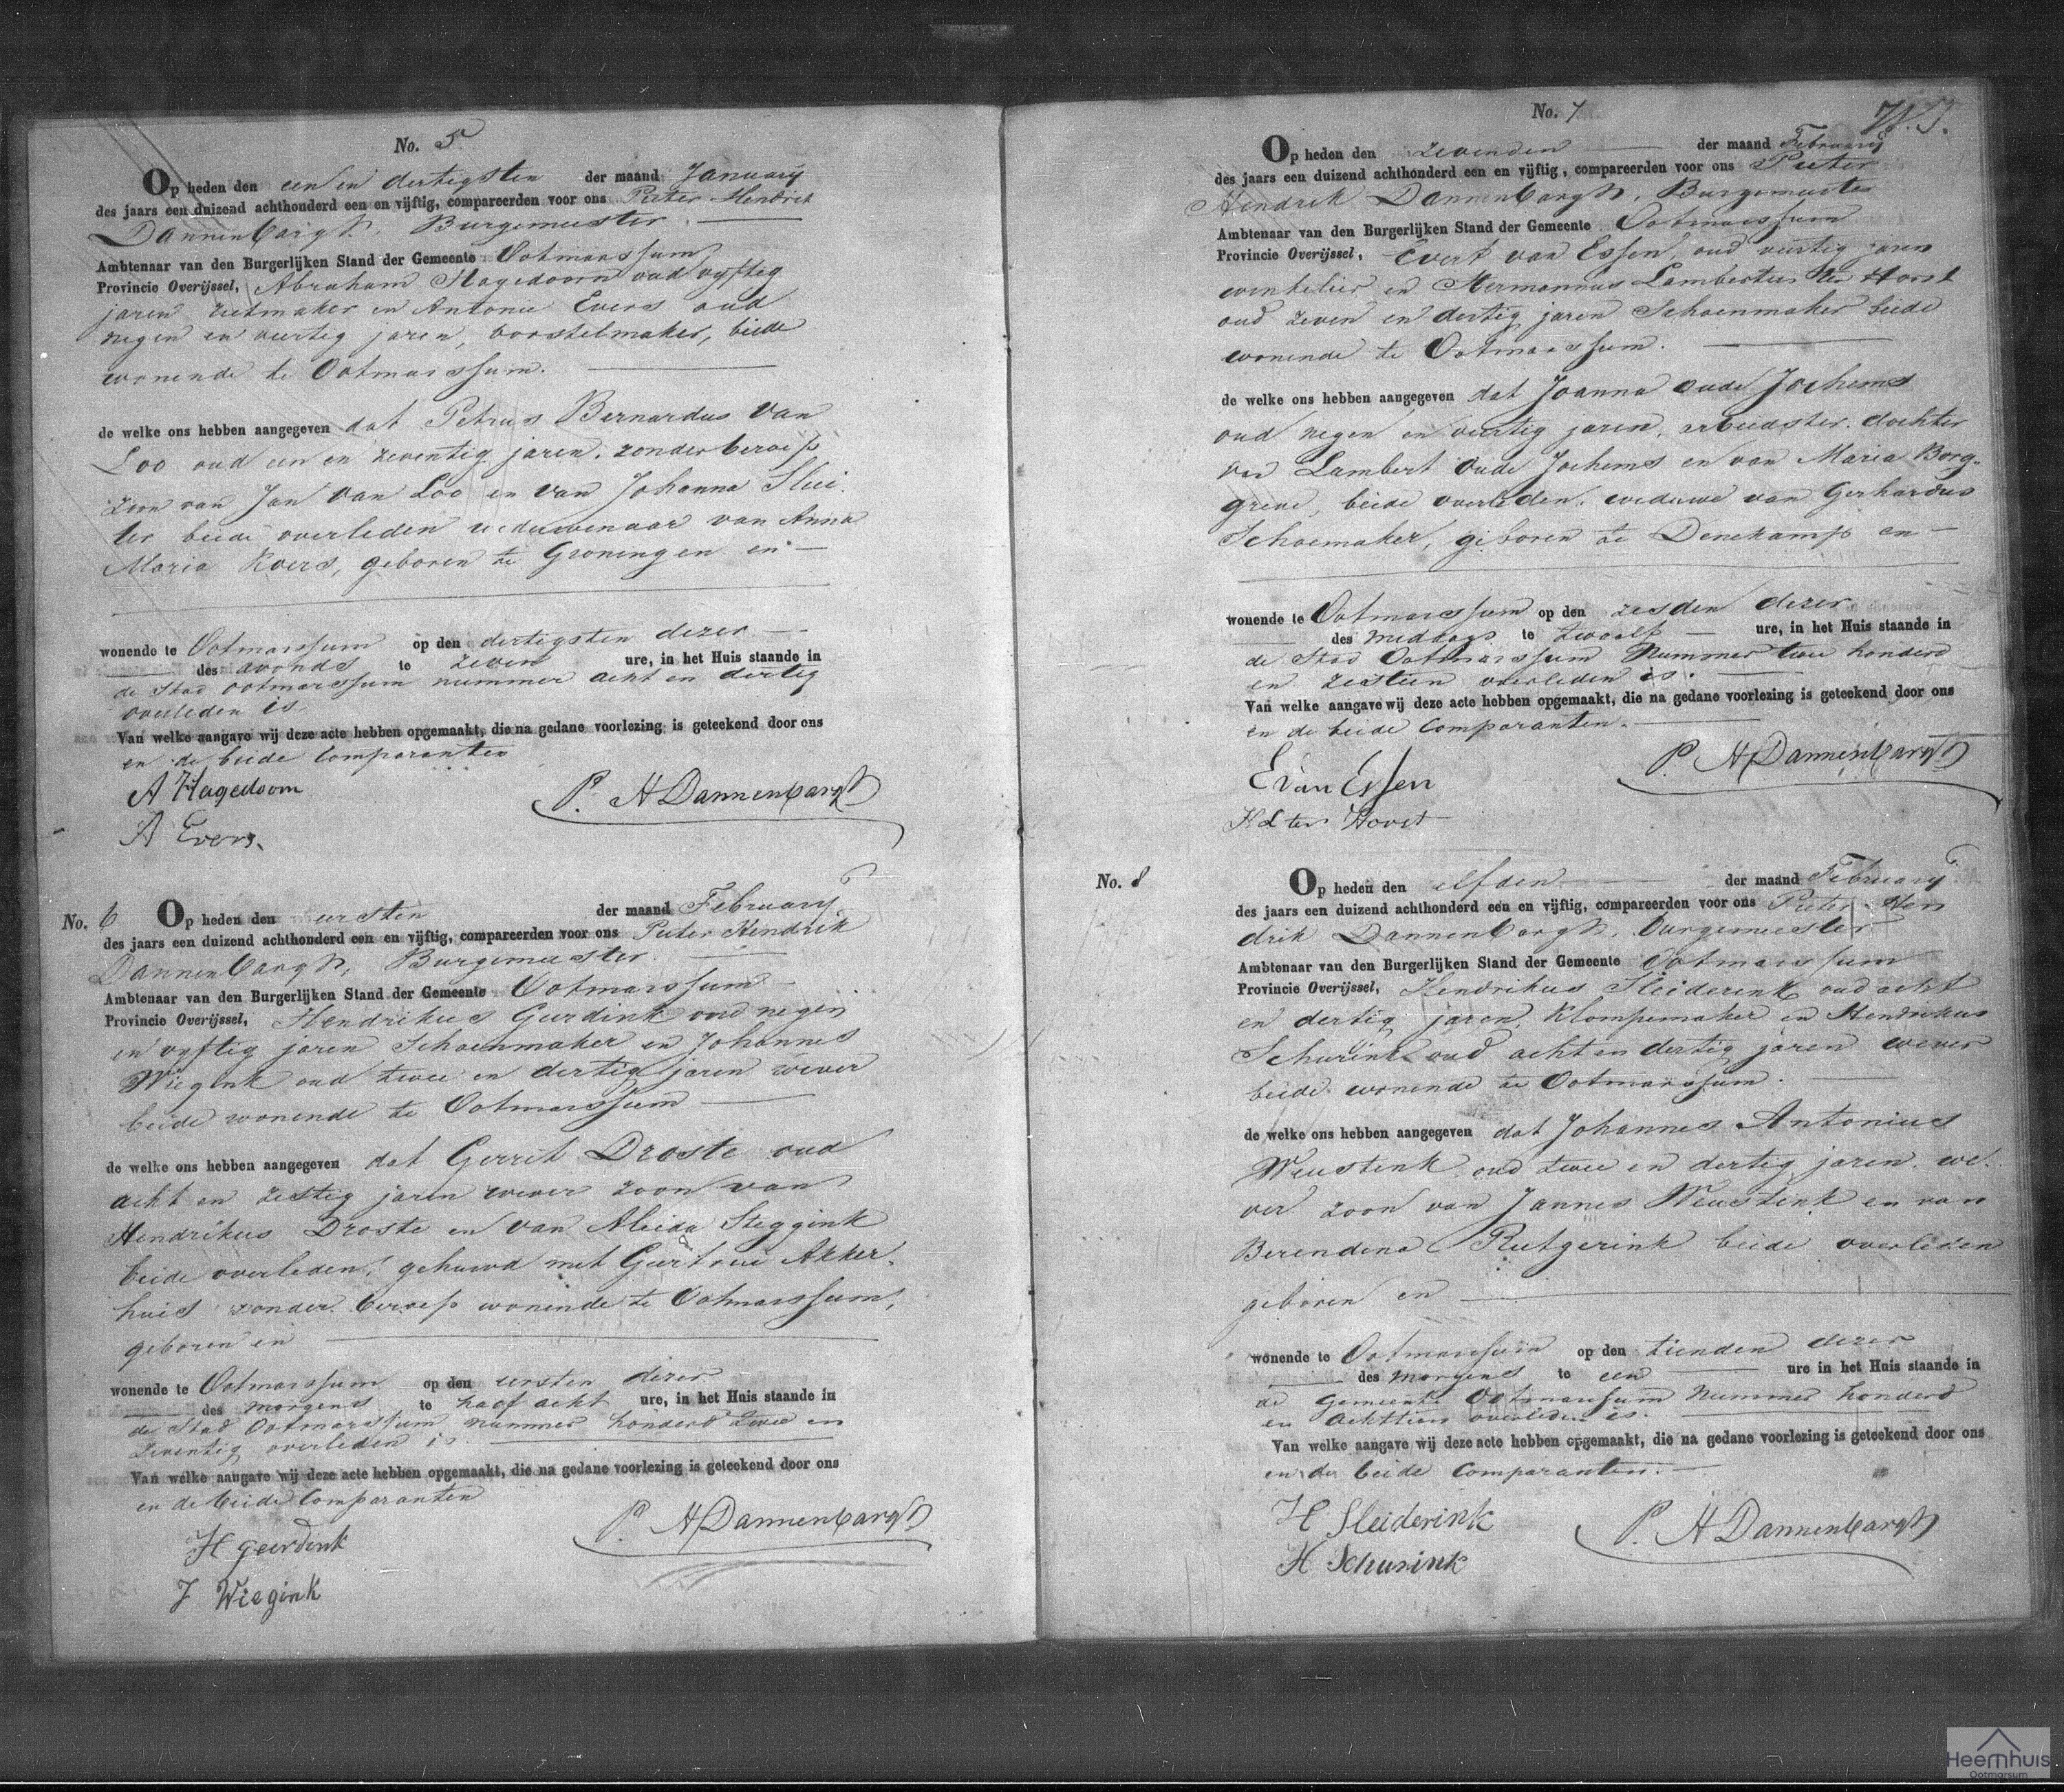 No. 5
Op heden den een en dertigsten der maand January
des jaars een duizend achthonderd een en vijftig, compareerden voor ons Pieter Hendrik
Dannenbargh, Burgemeester
Ambtenaar van den Burgerlijken Stand der Gemeente Ootmarssum
Provincie Overijssel, Abraham Hagedoorn oud vyftig
jaren zeefmaker en Antonie Evers oud
negen en veertig jaren, borstelmaker, beide
wonende te Ootmarssum.
de welke ons hebben aangegeven dat Petrus Bernardus van
Loo oud een en zeventig jaren, zonder beroep
zoon van Jan van Loo en van Johanna Slui
ter beide overleden weduwenaar van Anna
Maria Koers, geboren te Groningen en
wonende te Ootmarssum op den dertigsten dezer
des avonds te zeven ure, in het Huis staande in
de Stad Ootmarssum nummer acht en dertig
overleden is
Van welke aangave wij deze acte hebben opgemaakt, die na gedane voorlezing is geteekend door ons
en de beide Comparanten
A Hagedoorn
P. H Dannenbargh
A Evers.
No. 6 Op heden den eersten der maand February
des jaars een duizend achthonderd een en vijftig, compareerden voor ons Pieter Hendrik
Dannenbargh, Burgemeester.
Ambtenaar van den Burgerlijken Stand der Gemeente Ootmarssum
Provincie Overijssel, Hendrikus Geerdink oud negen
en vyftig jaren Schoenmaker en Johannes
Wiegink oud twee en dertig jaren wever
beide wonende te Ootmarssum
de welke ons hebben aangegeven dat Gerrit Droste oud
acht en zestig jaren wever zoon van
Hendrikus Droste en van Aleida Steggink
beide overleden, gehuwd met Geertrui Akker-
huis zonder beroep wonende te Ootmarssum,
geboren en
wonende te Ootmarssum op den eersten dezer
des morgens te half acht ure, in het Huis staande in
de Stad Ootmarssum nummer honderd twee en
zeventig overleden is
Van welke aangave wij deze acte hebben opgemaakt, die na gedane voorlezing is geteekend door ons
en de beide Comparanten
H geerdink
P. H Dannenbargh
J Wiegink
No. 7
Op heden den zevenden der maand February
des jaars een duizend achthonderd een en vijftig, compareerden voor ons Pieter
Hendrik Dannenbargh, Burgemeester
Ambtenaar van den Burgerlijken Stand der Gemeente Ootmarssum
Provincie Overijssel, Evert van Essen, oud veertig jaren
winkelier en Hermannus Lambertus ter Horst
oud zeven en dertig jaren Schoenmaker beide
wonende te Ootmarssum.
de welke ons hebben aangegeven dat Joanna oude Jochems
oud negen en veertig jaren, arbeidster, dochter
van Lambert oude Jochems en van Maria Borg-
greve, beide overleden, weduwe van Gerhardus
Schoemaker, geboren te Denekamp en
wonende te Ootmarssum op den zesden dezer
des middags te twaalf ure, in het Huis staande in
de Stad Ootmarssum Nummer twee honderd
en zestien overleden is.
Van welke aangave wij deze acte hebben opgemaakt, die na gedane voorlezing is geteekend door ons
en de beide Comparanten.
E van Essen
P. H Dannenbargh
H L ter Horst
No. 8 Op heden den elfden der maand February
des jaars een duizend achthonderd een en vijftig, compareerden voor ons Pieter Hen
drik Dannenbargh, Burgemeester
Ambtenaar van den Burgerlijken Stand der Gemeente Ootmarssum
Provincie Overijssel, Hendrikus Sleiderink oud acht
en dertig jaren, Klompemaker en Hendrikus
Schurink oud acht en dertig jaren wever
beide wonende te Ootmarssum.
de welke ons hebben aangegeven dat Johannes Antonius
Weustink oud twee en dertig jaren, we-
ver zoon van Jannes Weustink en van
Berendena Rutgerink beide overleden
geboren en
wonende te Ootmarssum op den tienden dezer
des morgens te een ure in het Huis staande in
de gemeente Ootmarssum Nummer honderd
en achttien overleden is.
Van welke aangave wij deze acte hebben opgemaakt, die na gedane voorlezing is geteekend door ons
en de beide Comparanten.
H Sleiderink
P. H Dannenbargh
H Schurink
Heemhuis
Ootmarsum